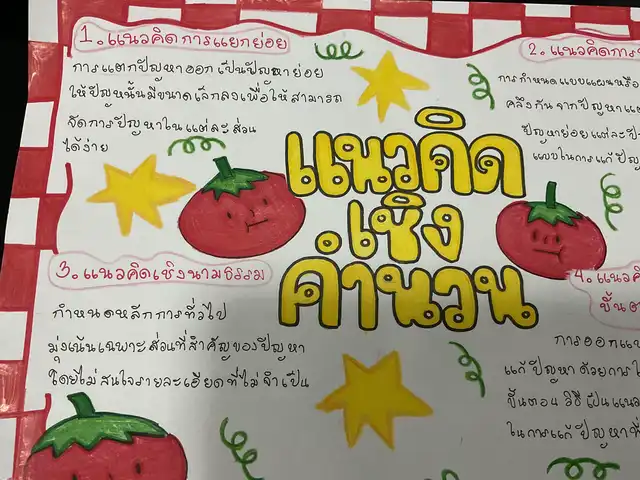 1. แนวคิดการแยกย่อย
การแตกปัญหาออกเป็นปัญหาย่อย
ให้ปัญหานั้นมีขนาดเล็กลงเพื่อให้สามารถ
จัดการปัญหาในแต่ละส่วน
ได้ง่าย
2. แนวคิดการ
การกำหนดแบบแผนหรือ
คลึงกันจากปัญหา
ปัญหาย่อยแต่ละ
แบบในการแก้
แนวคิด
เชิง
คำนวน
3. แนวคิดเชิงนามธรรม
กำหนดหลักการทั่วไป
มุ่งเน้นเฉพาะส่วนที่สำคัญของปัญหา
โดยไม่สนใจรายละเอียดที่ไม่จำเป็น
4.
การออกแบบ
แก้ปัญหาด้วยการ
ขั้นตอน วิธี เป็น
ในการแก้ปัญหา